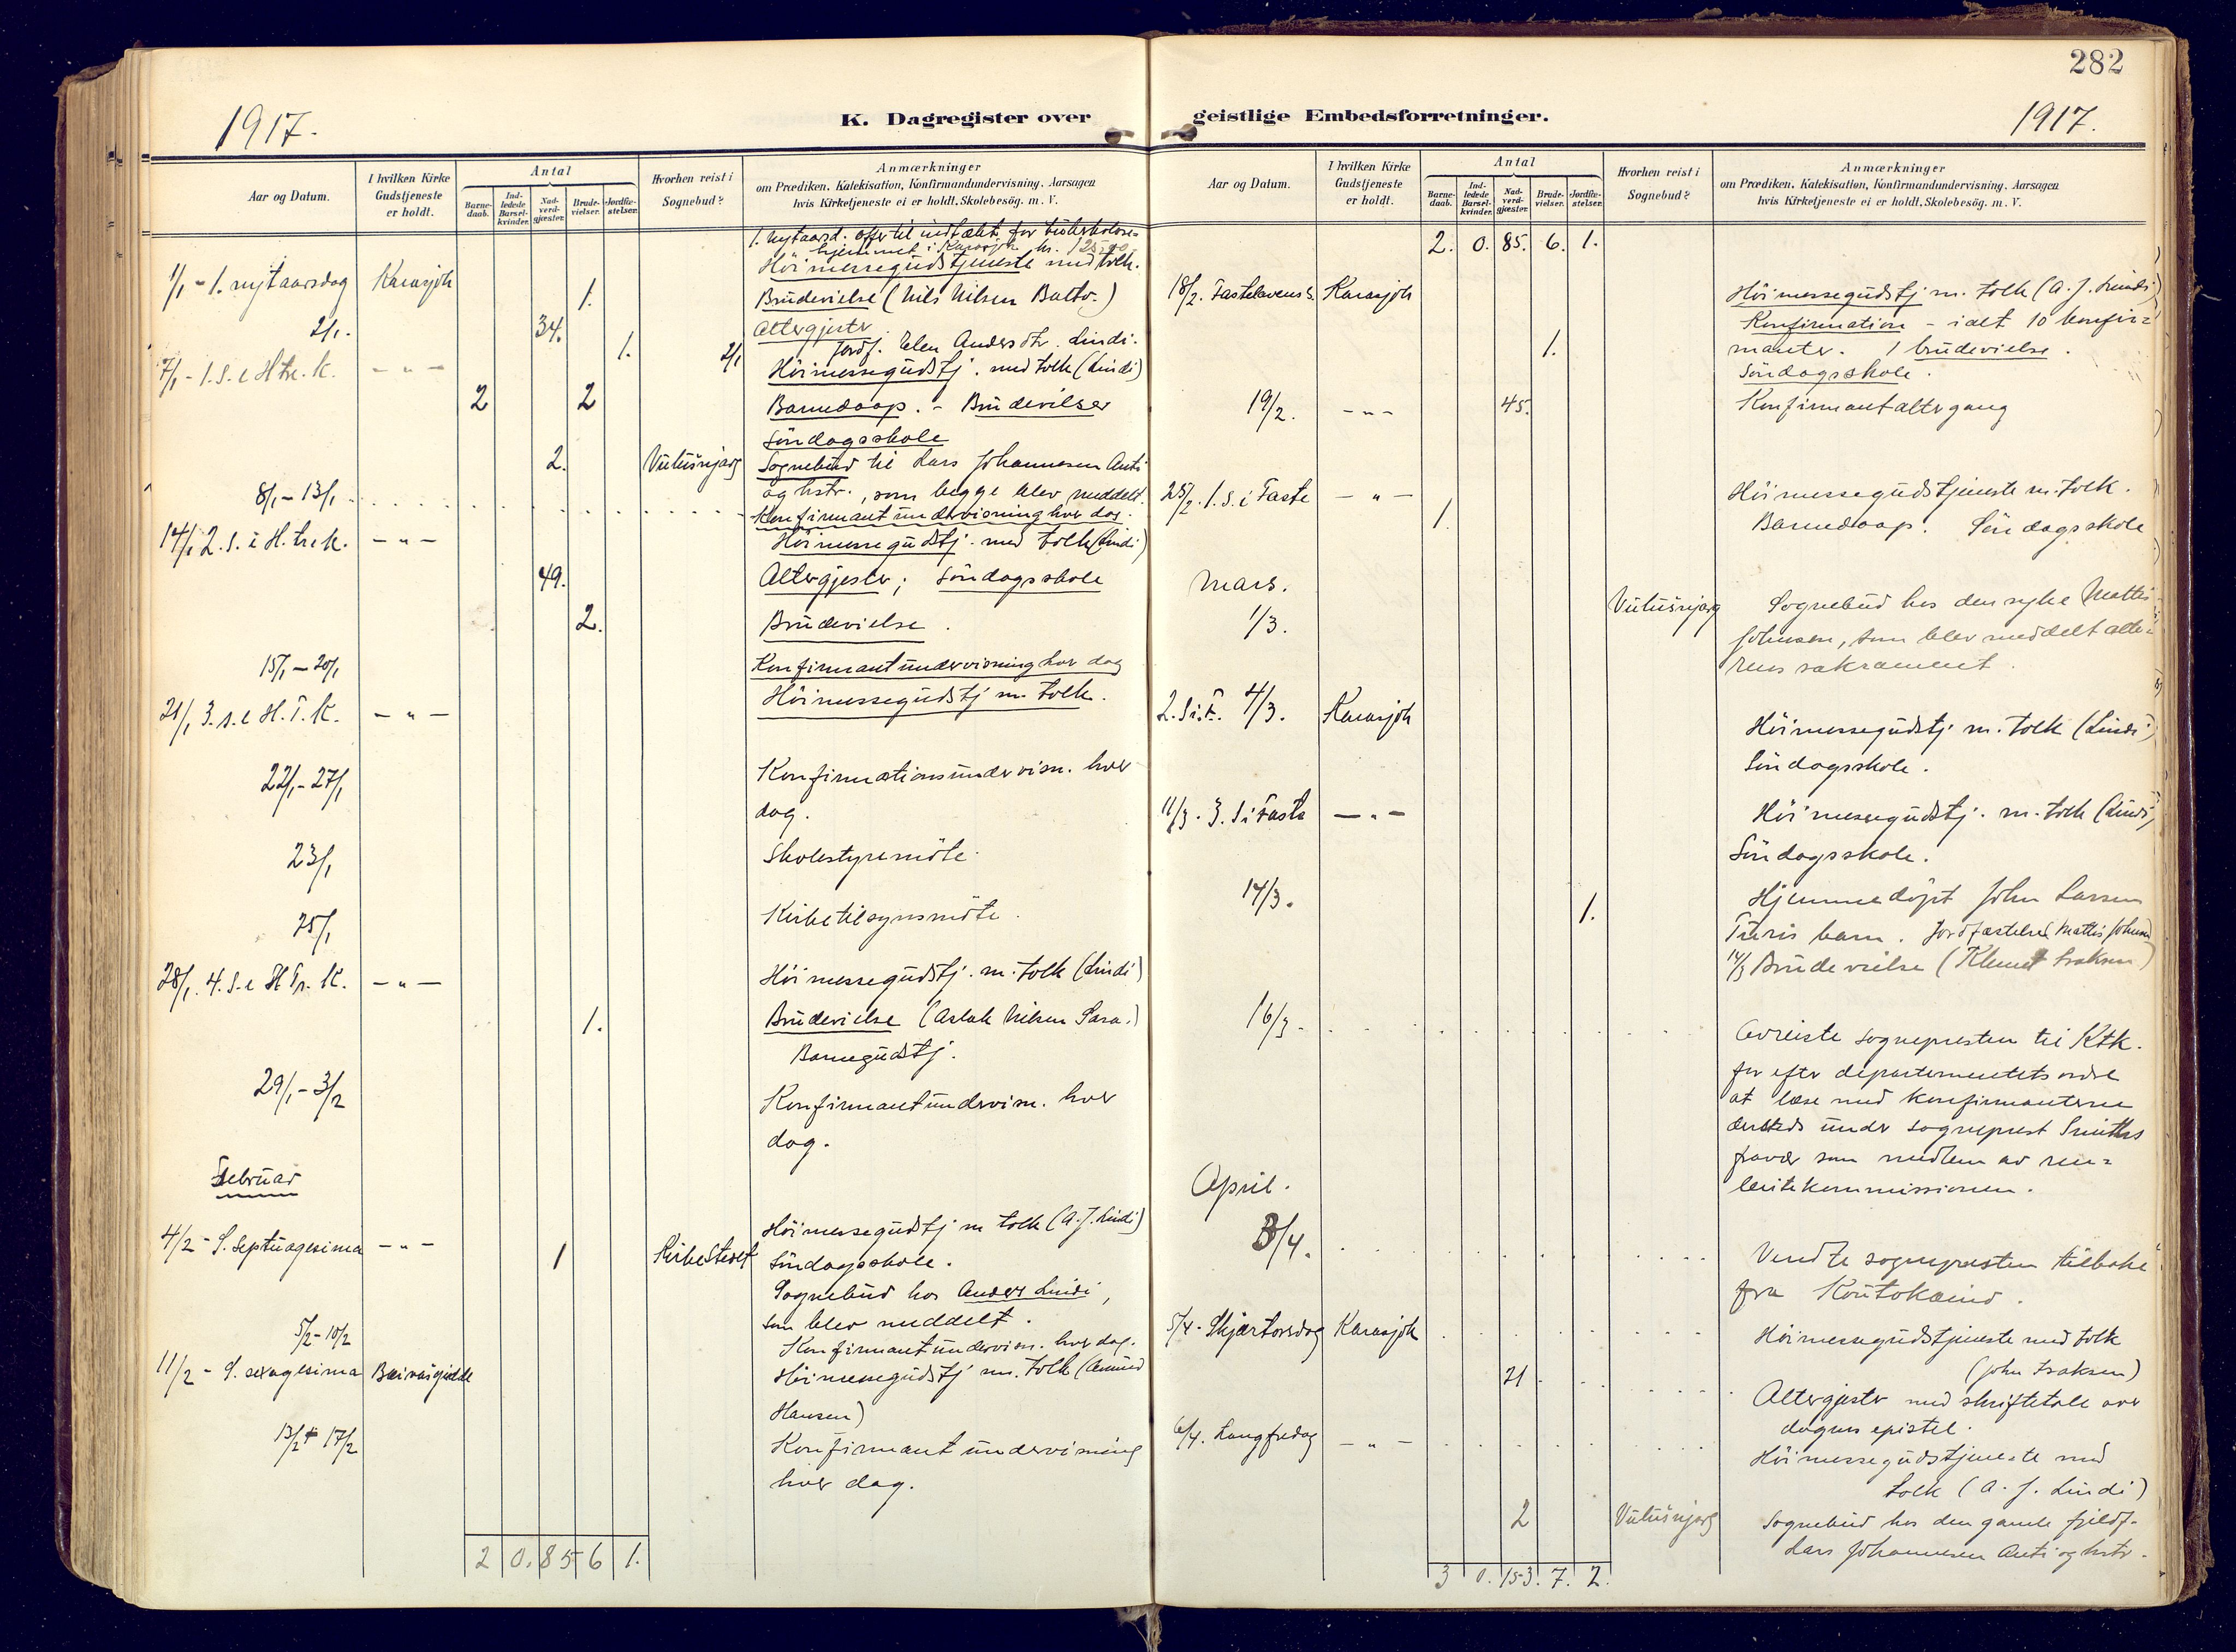 282
1917.
K. Dagregister over
geistlige Embedsforretninger.
1917.
Aar og Datum.
I hvilken Kirke Gudstjeneste er holdt.
Antal
Barne-daab.
Ind-ledede Barsel-kvinder.
Nad-verd-gjæster.
Brude-vielser.
Jordfæ-stelser.
Hvorhen reist i Sognebud?
Anmærkninger
om Prædiken, Katekisation, Konfirmandundervisning, Aarsagen
hvis Kirketjeneste ei er holdt, Skolebesög. m. V.
1. nytaarsd. offer til indtækt for tuberkulose-
hjemmet i Karasjok kr. 125,00
Höimessegudstjeneste med tolk.
1/1 - 1. nytaarsdag Karasjok 1. Brudevielse (Nils Nilsen Balto.)
34. Altergjester
2/1. 1. 2/1 Jordf. Elen Andersdtr. Lindi.
7/1 - 1. S. e H. tr. K. - " - Höimessegudstj. med tolk (Lindi)
2 2 Barnedaap. - Brudevielser
Söndagsskole
2. Vuťušnjarg Sognebud til Lars Johannesen Anti
og hstr., som begge blev meddelt.
8/1 - 13/1 Konfirmantundervisning hver dag.
14/1 2. S. i H. tr. K. - " - Höimessegudstj. med tolk (Lindi)
49. Altergjester; Söndagsskole
2. Brudevielse.
15/1 - 20/1 Konfirmantundervisning hver dag
21/1 3. s. e H. T. K. - " - Höimessegudstj m. tolk.
22/1 - 27/1 Konfirmationsundervisn. hver
dag.
23/1 Skolestyremöte.
25/1 Kirketilsynsmöte.
28/1. 4. S. e H Tr. K. - " - Höimessegudstj. m. tolk (Lindi)
1. Brudevielse (Aslak Nilsen Sara.)
Barnegudstj.
29/1 - 3/2 Konfirmantundervisn. hver
dag.
Februar
4/2 - S. Septuagesima - " - Höimessegudstj m tolk (A. J. Lindi)
1 Kirkestedet Söndagsskole.
Sognebud hos Anders Lindi,
som blev meddelt.
5/2 - 10/2 Konfirmantundervisn. hver dag.
11/2 - S. sexagesima Beivasgiedde Höimessegudstj m. tolk (Amund
Hansen)
13/2 17/2 Konfirmantundervisning
hver dag.
2 0. 85 6 1.
Aar og Datum.
I hvilken Kirke Gudstjeneste er holdt.
Antal
Barne-daab.
Ind-ledede Barsel-kvinder.
Nad-verd-gjæster.
Brude-vielser.
Jordfæ-stelser.
Hvorhen reist i Sognebud?
Anmærkninger
om Prædiken, Katekisation, Konfirmandundervisning, Aarsagen
hvis Kirketjeneste ei er holdt, Skolebesög. m. V.
2. 0. 85. 6. 1.
18/2. Fastelavenss. Karasjok Höimessegudstj m. tolk (A. J. Lindi)
Konfirmation - ialt 10 konfir-
1. manter. 1 brudevielse.
Söndagsskole.
19/2. - " - 45. Konfirmantaltergang
25/2. 1. S. i Faste - " - Höimessegudstjeneste m. tolk.
1. Barnedaap. Söndagsskole
Mars.
1/3. Vuťušnjarg Sognebud hos den syke Mattis
Johnsen, som blev meddelt alte-
rens sakrament.
2. S. i. F. 4/3. Karasjok Höimessegudstj m. tolk (Lindi)
Söndagsskole.
11/3. 3. S i Faste - " - Höimessegudstj. m. tolk (Lindi)
Söndagsskole.
14/3. Hjemmedöpt John Larsen
1. Turis barn. Jordfæstelse Mattis Johnsen
14/3 Brudevielse (Klemet Isaksen)
16/3. Avreiste sognepresten til Ktk.
for efter departementets ordre
at læse med konfirmanterne
dersteds under sogneprest Smiths
fravær som medlem av ren-
beitekommissionen.
April.
3/4. Vendte sognepresten tilbake
fra Koutokeino.
5/4 - Skjærtorsdag Karasjok Höimessegudstjeneste med tolk
(John Isaksen)
21 Altergjester med skriftetale over
dagens epistel.
6/4. Langfredag - " - Höimessegudstjeneste med
tolk (A. J. Lindi)
2 Vuťušnjarg Sognebud hos den gamle fjeldf.
Lars Johannesen Anti og hstr.
3 0. 153. 7. 2.